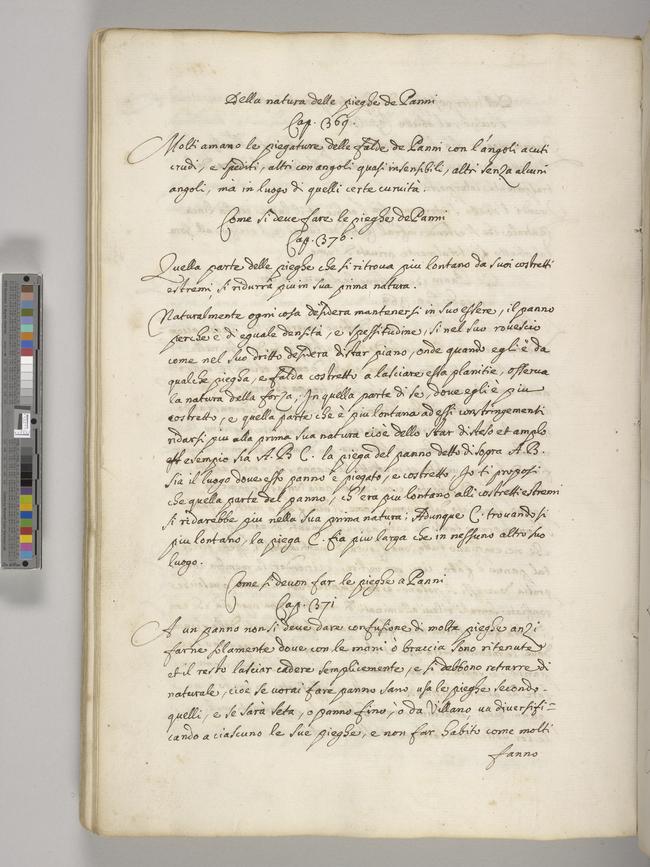 Della natura delle pieghe de Panni
Cap. 369.
Molti amano le piegature delle falde de Panni con l'angoli acuti
crudi, e spediti, altri con angoli quasi insensibili, altri senza alcuni
angoli, mà in luogo di quelli certe curuità.
Come si deve fare le pieghe de Panni
Cap. 370.
Quella parte delle pieghe che si ritroua piu lontano da suoi costretti
estremi, si ridurrà piu in sua prima natura.
Naturalmente ogni cosa desidera mantenersi in suo essere, il panno
perche è di eguale densità, e spessitudine, si nel suo rouescio
come nel suo dritto desidera di star piano, onde quando egli è da
qualche piegha, e falda costretto a lasciare essa planitie, osserua
la natura della forza, in quella parte di se, dove egli è piu
costretto, e quella parte che è piu lontana ad essi constringementi
ridarsi piu alla prima sua natura cioè dello star disteso et amplo
esempio sia A. B. C. la piega del panno detto di sopra A. B.
sia il luogo dove esso panno è piegato, e costretto. Io ti proposi
che quella parte del panno, ch'era piu lontano alli costretti estremi
si ridarebbe piu nella sua prima natura; Adunque C. trouandosi
piu lontano, la piega C. fia piu larga che in nessuno altro suo
luogo.
Come si devon far le pieghe a Panni
Cap. 371
A un panno non si deve dare confusione di molta pieghe anzi
farne solamente dove con le mani ò braccia sono ritenute
et il resto lasciar cadere semplicemente, e si debbono retrarre di
naturale, cioè se vorai fare panno sano usa le pieghe secondo
quelli, e se sarà seta, o panno fino, ò da Villano, ua diversifi=
cando a ciascuno le sue pieghe, e non far habito come molti
fanno